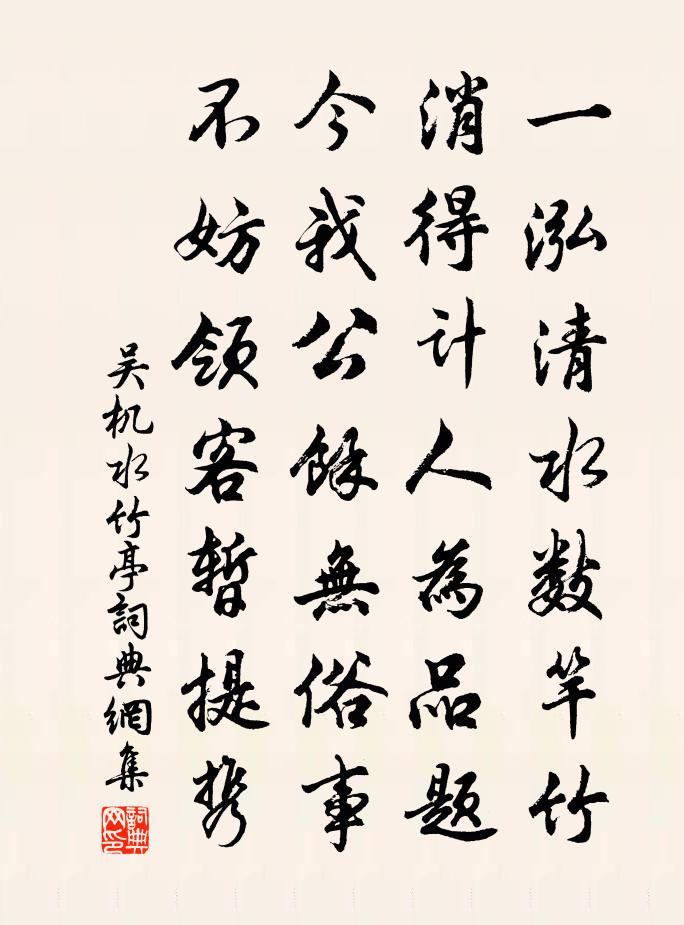 一泓清水数竿竹
消得计人為品题
今我公餘無俗事
不妨领客暂提携
吴机水竹亭詞典網集
詞典网印